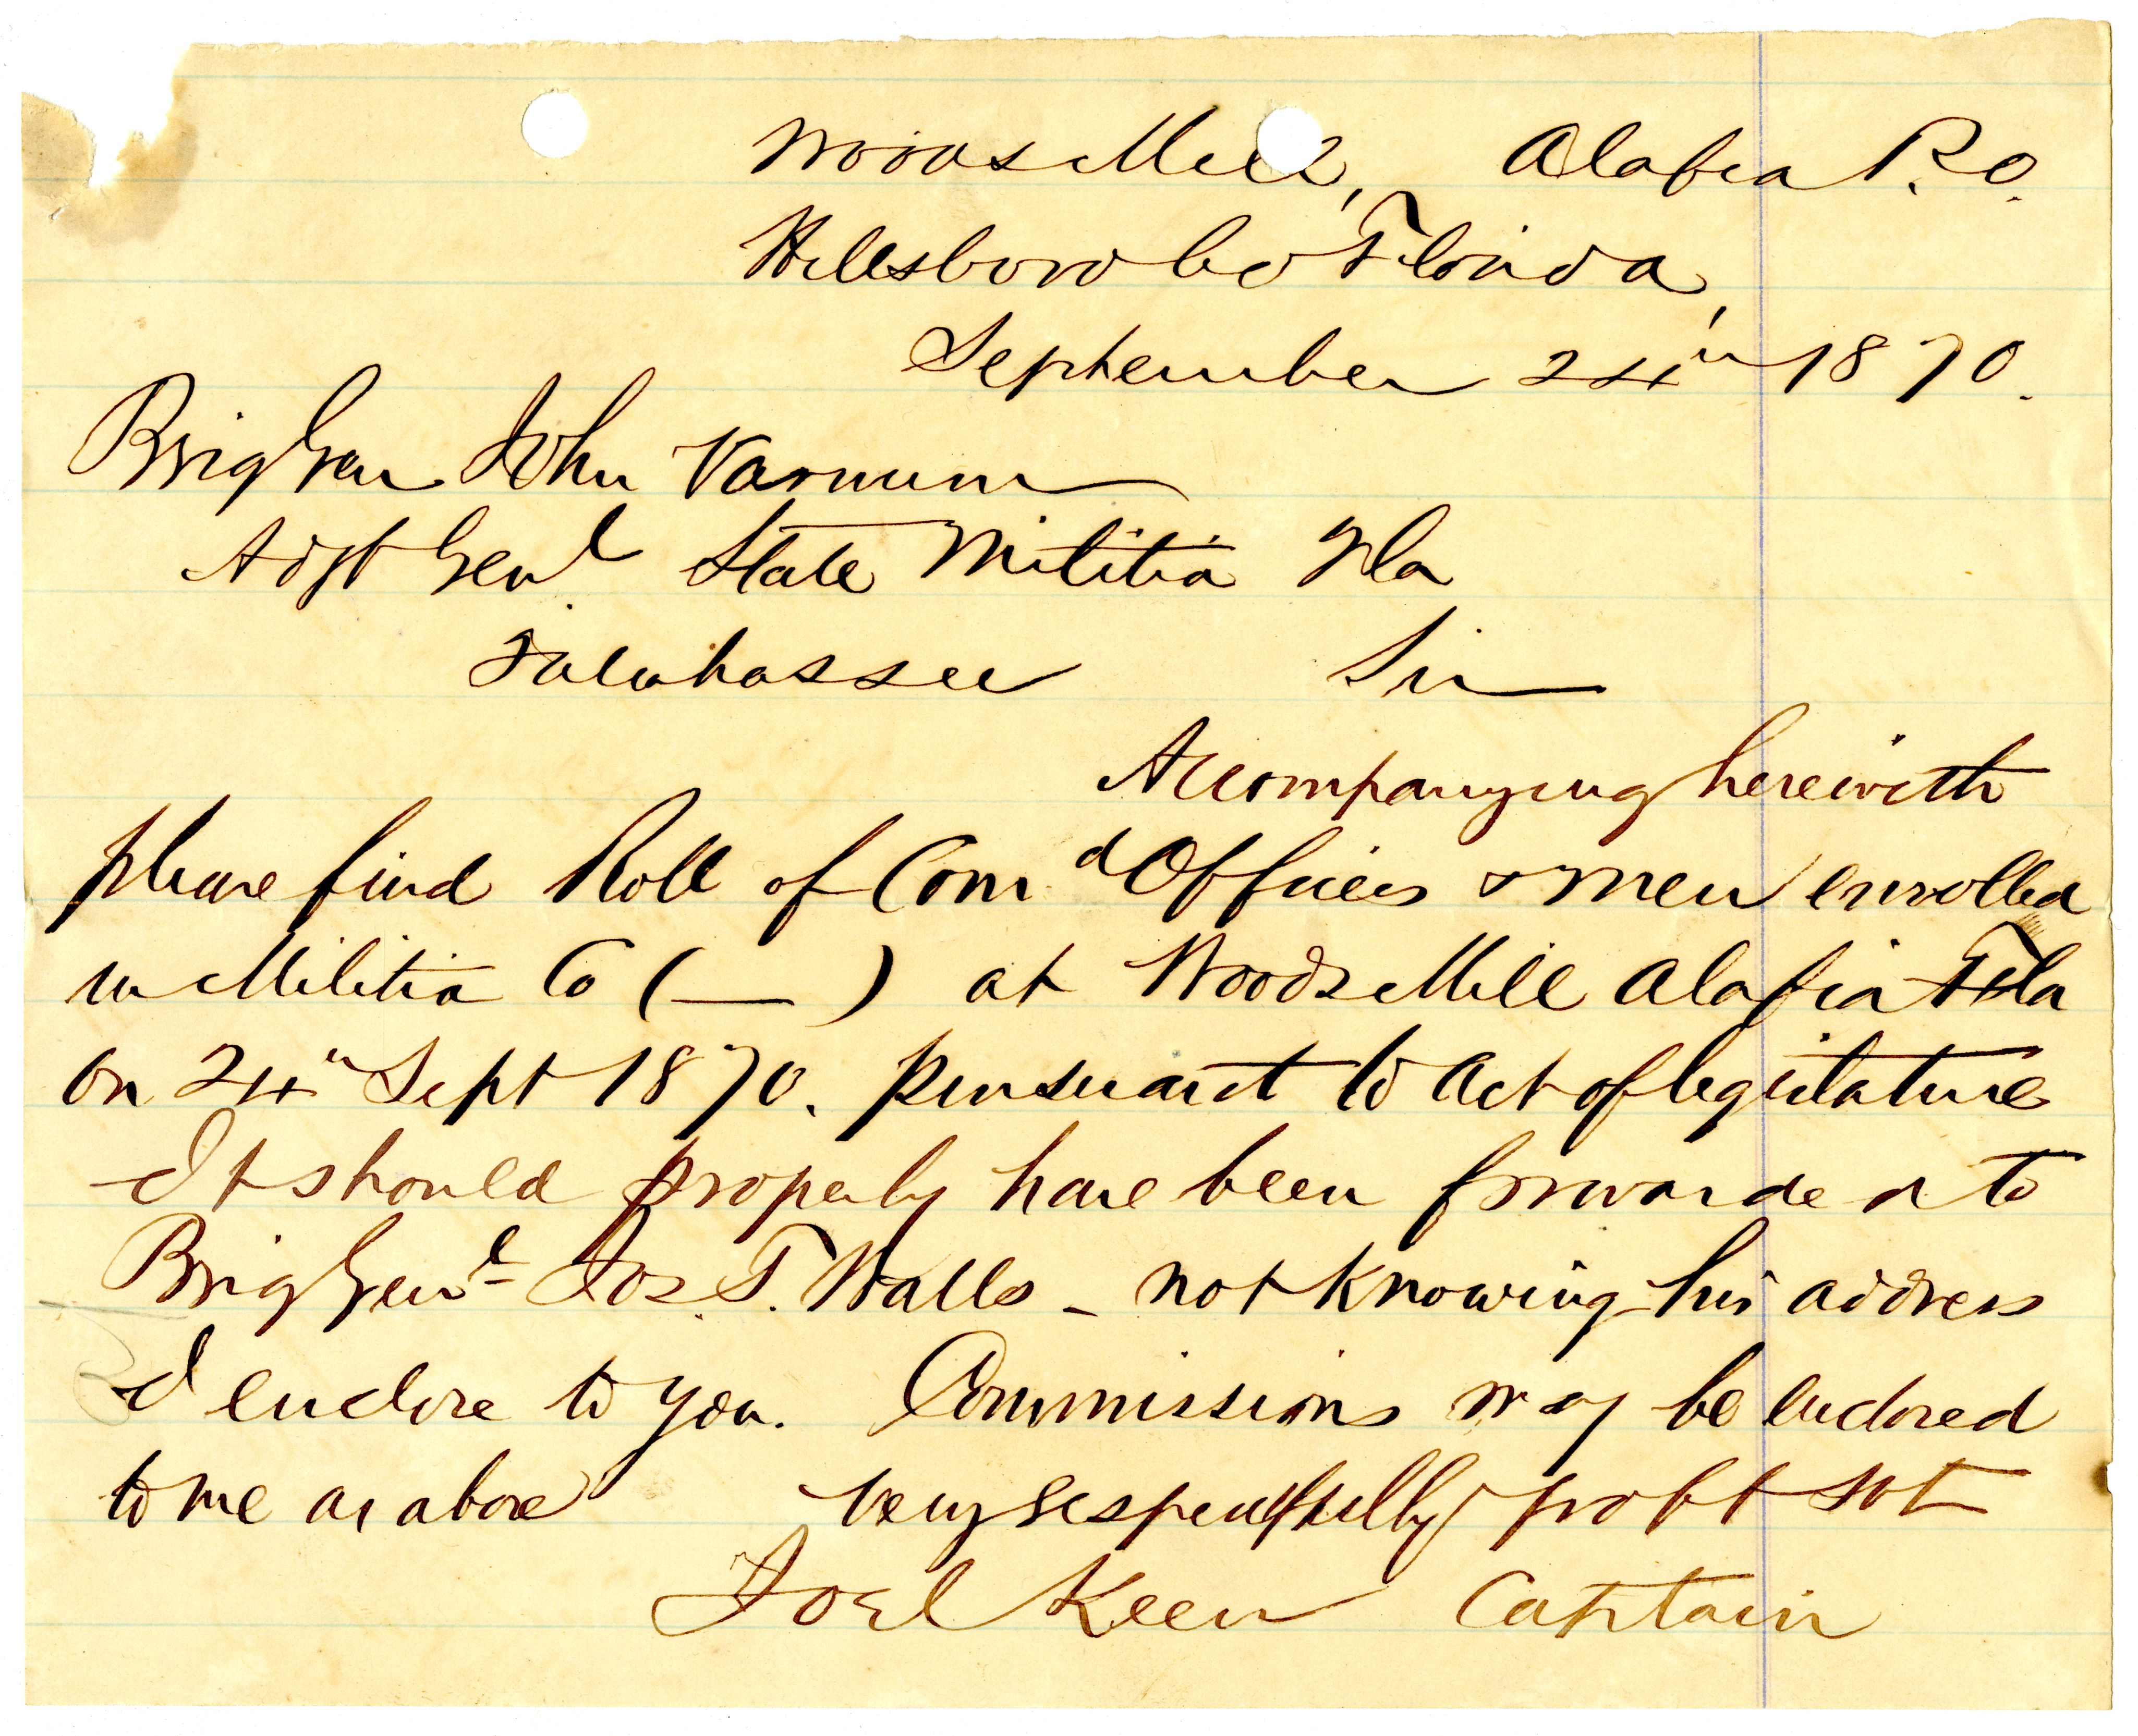 Woods Mill, Alafia P.O.
Hillsboro Co Florida,
September 24th 1870.
Brig Gen John Varnum
Adjt Genl State Militia Fla
Talahassee Sir
Accompanying herewith
please find Roll of Comd Officers & men enrolled
in Militia Co (—) at Woods Mill Alafia Fla
on 24th Sept 1870. pursuant to act of legislature
It should properly have been forwarded to
Brig Genl Jos. T. Walls - not knowing his address
I enclose to you. Commissions may be enclosed
to me as above very respectfully yr obt svt
Joel Keen Captain